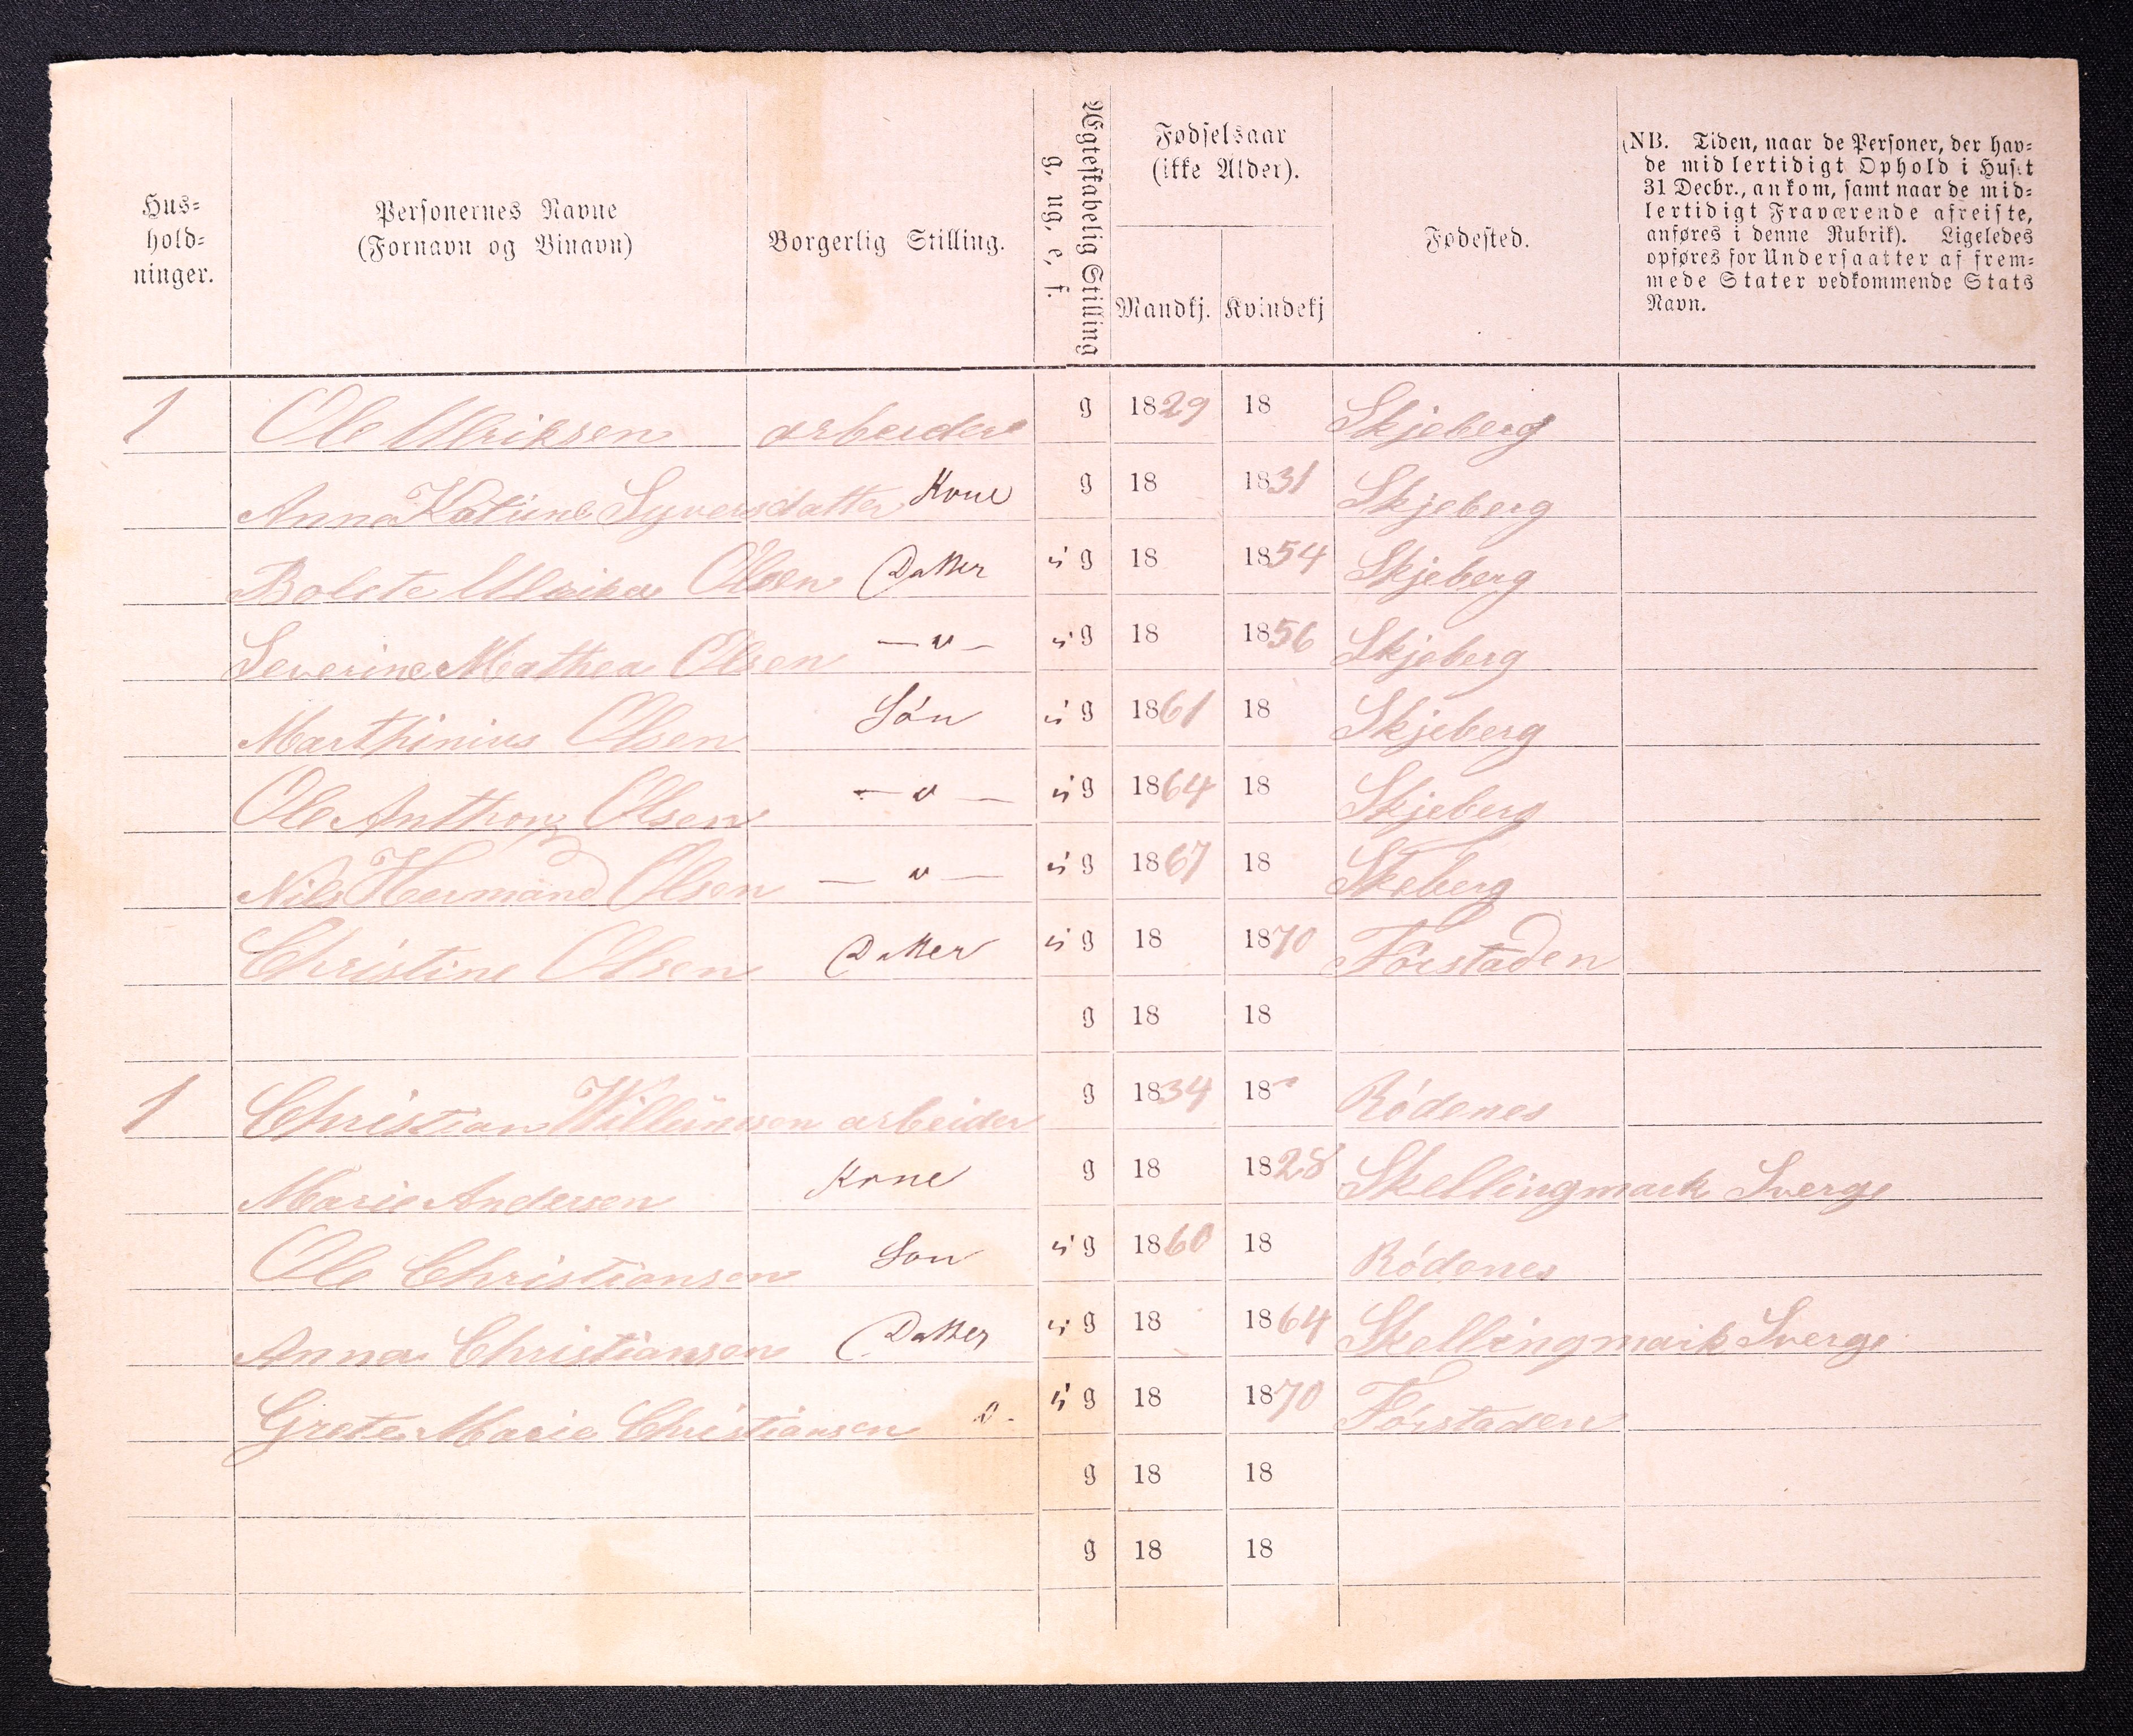 Hus-
hold-
ninger.
Personernes Navne
(Fornavn og Binavn)
Borgerlig Stilling.
Ægteskabelig Stilling
g, ug, e, f.
Fødselsaar
(ikke Alder).
Mandkj. Kvindekj
Fødested.
(NB. Tiden, naar de Personer, der hav-
de midlertidigt Ophold i Huset
31 Decbr., ankom, samt naar de mid-
lertidigt Fraværende afreiste,
anføres i denne Rubrik). Ligeledes
opføres for Undersaatter af frem-
mede Stater vedkommende Stats
Navn.
1 Ole Ulriksen arbeider g 1829 18 Skjeberg
Anna Katrine Syversdatter Kone g 18 1831 Skjeberg
Bolete Ulrika Olsen Datter ug 18 1854 Skjeberg
Severine Mathea Olsen —〃— ug 18 1856 Skjeberg
Marthinius Olsen Sön ug 1861 18 Skjeberg
Ole Anthon Olsen —〃— ug 1864 18 Skjeberg
Nils Hermand Olsen —〃— ug 1867 18 Skeberg
Christine Olsen Datter ug 18 1870 Forstaden
g 18 18
1 Christian Willumsen arbeider g 1834 18 Rödenes
Marie Andersen Kone g 18 1828 Skellingmark Sverge
Ole Christiansen Son ug 1860 18 Rödenes
Anna Christiansen Datter ug 18 1864 Skellingmark Sverge
Grete Marie Christiansen 〃- ug 18 1870 Forstaden
g 18 18
g 18 18